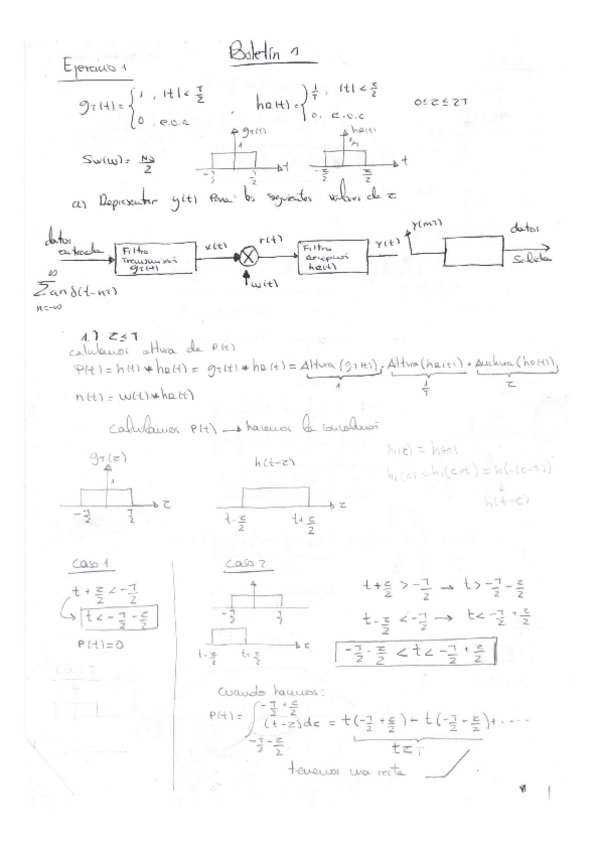 Boletín 1
Ejercicio 1
g_T(t) = { 1 , |t| < T/2
0 . e.o.c
h_R(t) = { 1/T , |t| < τ/2
0, e.o.c
0 ≤ τ ≤ 2T
g_T(t)
1
-T/2 T/2 t
h_R(t)
1/T
-τ/2 τ/2 t
S_W(ω) = N0/2
a) Representar y(t) para los siguientes valores de τ
datos entrada
Filtro Transmisión g_T(t)
x(t)
r(t)
w(t)
Filtro recepción h_R(t)
y(t)
datos
salida
∞
Σ an δ(t-nT)
n=-∞
1.) τ ≤ T
calculamos altura de P(t)
P(t) = h(t) * h_R(t) = g_T(t) * h_R(t) = Altura(g_T(t)) · Altura(h_R(t)) · Anchura(h_R(t))
1 1/T τ
n(t) = w(t) * h_R(t)
Calculamos P(t) → hacemos la convolución
g_T(τ)
1
-T/2 T/2 τ
h(t-τ)
t-τ/2 t+τ/2 τ
h(t-τ)
Caso 1
t + τ/2 < -T/2
t < -T/2 - τ/2
P(t) = 0
Caso 2
-T/2 T/2
t-τ/2 t+τ/2 τ
t+τ/2 > -T/2 → t > -T/2 - τ/2
t-τ/2 < -T/2 → t < -T/2 + τ/2
-T/2 - τ/2 < t < -T/2 + τ/2
Cuando hacemos:
P(t) = ∫ (t-τ)dτ = t(-T/2 + τ/2) - t(-T/2 - τ/2) + ....
-T/2 + τ/2
-T/2 - τ/2
tenemos una recta
1